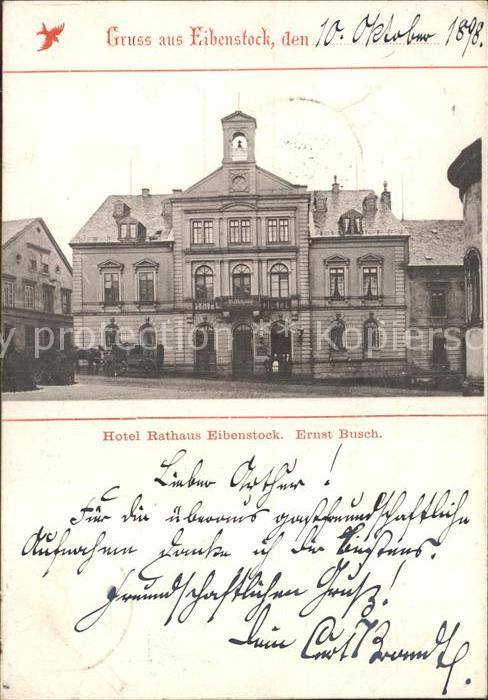 Gruss aus Eibenstock, den 10. Oktober 1898.
Hotel Rathaus Eibenstock. Ernst Busch.
Lieber Arthur!
Für die überaus gastfreundschaftliche
Aufnahme danke ich dir bestens.
Freundschaftlichen Gruß!
Dein Curt Brandt.